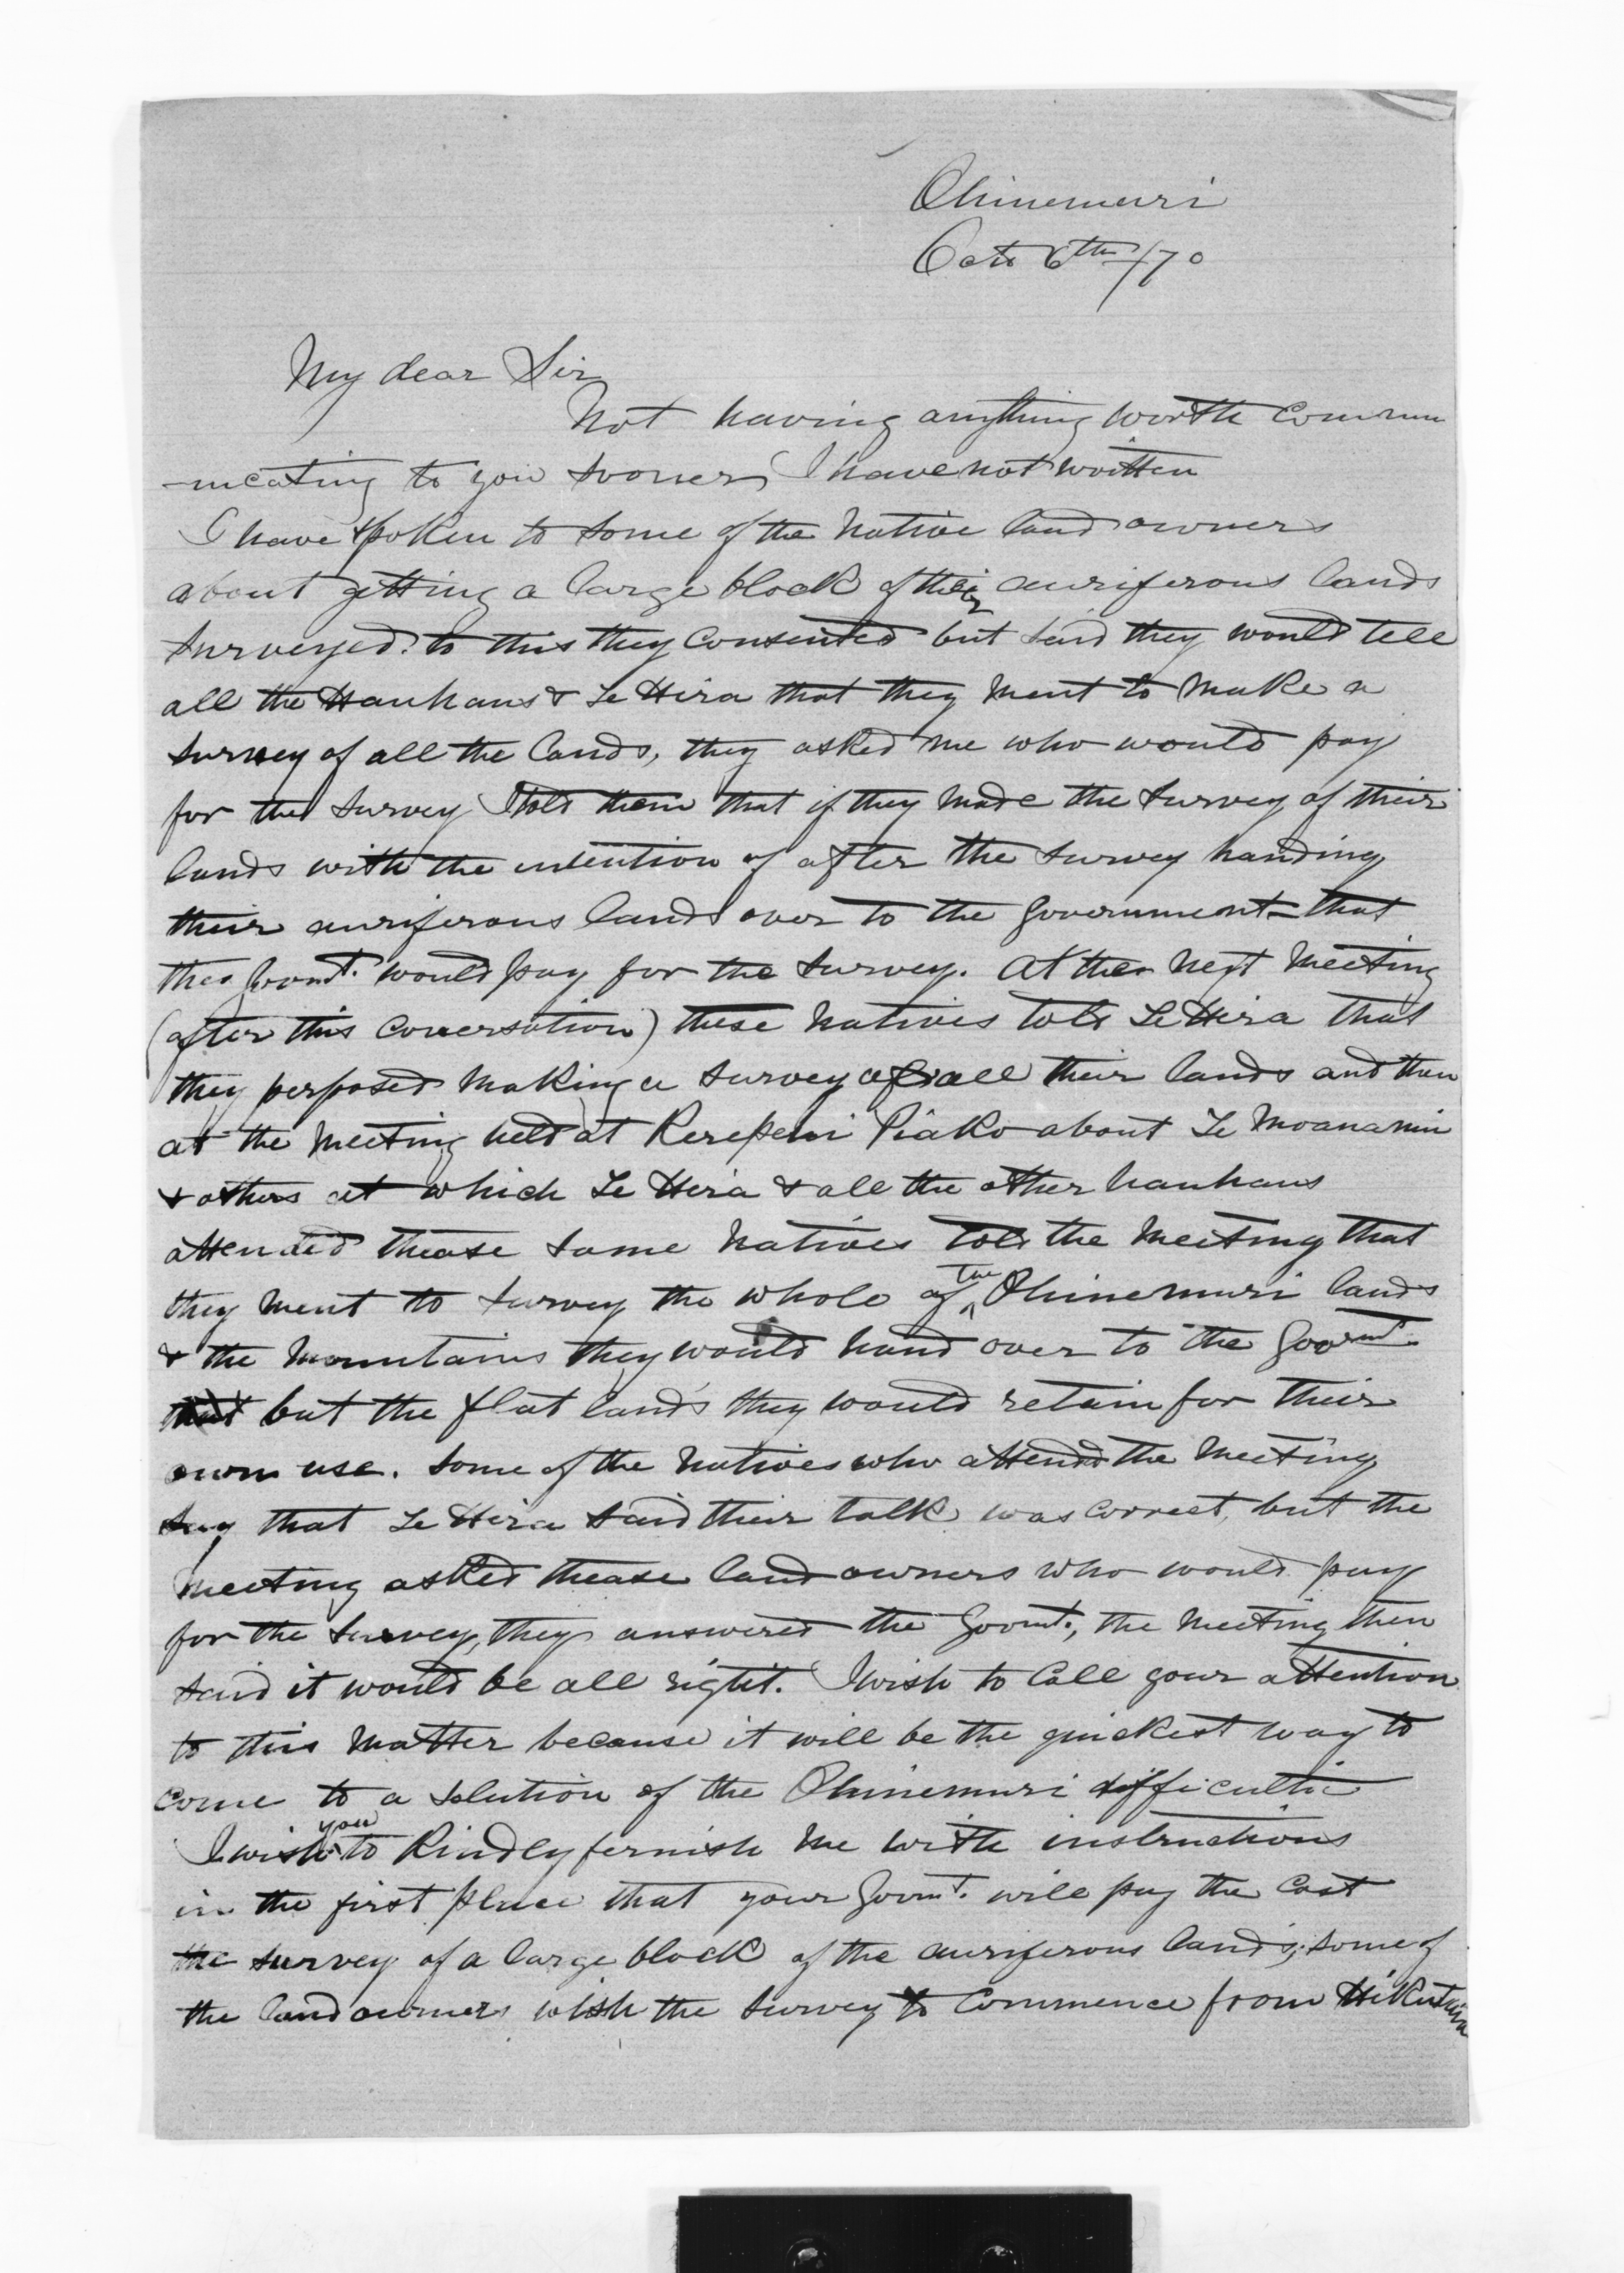 Ohinemuri
Octr 6th/70
My dear Sir
Not having anything worth commu
-nicating to you sooner, I have not written
I have spoken to some of the Native land owners
about getting a large block of their auriferous lands
surveyed. to this they consented but said they would tell
all the Hauhaus & Te Hira that they ment to make a
survey of all the lands, they asked me who would pay
for the survey I told them that if they made the survey of their
lands with the intention of after the survey handing
their auriferous lands over to the Government that
the Govmt. would pay for the survey. At the next meeting
(after this conversation) these Natives told Te Hira that
they perposed making a survey of all their lands and then
at the meeting held at Kerepehi Piako about Te Moananui
& others at which Te Hira & all the other hauhaus
attended thease same Natives told the meeting that
they ment to survey the whole of the Ohinemuri lands
& the mountains they would hand over to the Govrmt.
that but the flat lands they would retain for their
own use. Some of the Natives who attended the meeting
say that Te Hira said their talk was correct, but the
meeting asked thease land owners who would pay
for the survey, they answered the Govmt., the meeting then
said it would be all right. I wish to call your attention
to this matter because it will be the quickest way to
come to a solution of the Ohinemuri difficultie
I wish you to kindly fernish me with instructions
in the first place that your Govmt. will pay the cost
the survey of a large block of the auriferous lands; some of
the land owners wish the survey to commence from Hikutaia